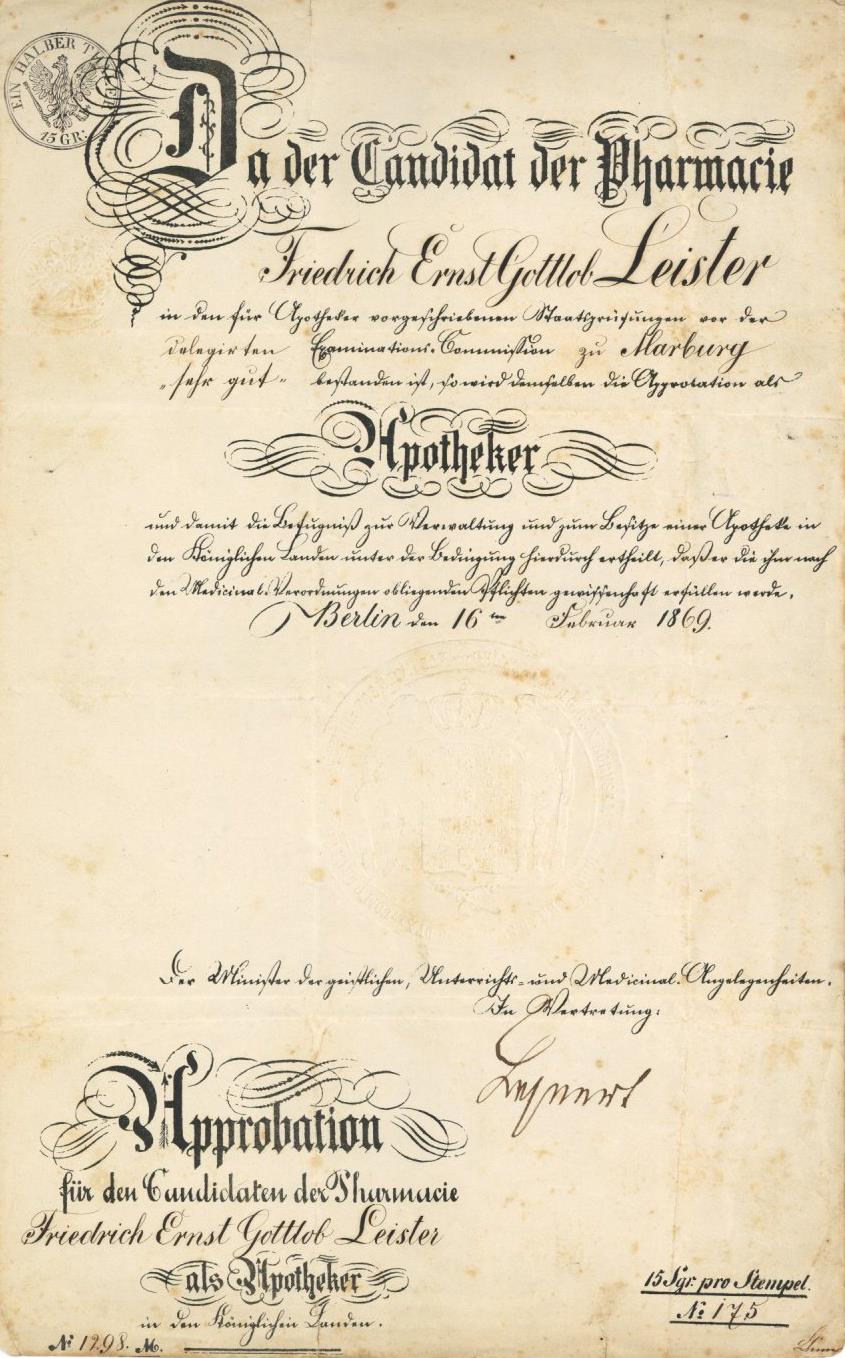 EIN HALBER THALER
15 GR.
Da der Candidat der Pharmacie
Friedrich Ernst Gottlob Leister
in den für Apotheker vorgeschriebenen Staatsprüfungen vor der
delegirten Examinations-Commission zu Marburg
„sehr gut“ bestanden ist, so wird demselben die Approbation als
Apotheker
und damit die Befugniß zur Verwaltung und zum Besitze einer Apotheke in
den Königlichen Landen unter der Bedingung hierdurch ertheilt, daß er die ihm nach
den Medicinal-Verordnungen obliegenden Pflichten gewissenhaft erfüllen werde.
Berlin den 16ten Februar 1869.
Der Minister der geistlichen, Unterrichts- und Medicinal-Angelegenheiten.
In Vertretung:
Lehnert
Approbation
für den Candidaten der Pharmacie
Friedrich Ernst Gottlob Leister
als Apotheker
in den Königlichen Landen.
№ 1298. M.
15 Sgr. pro Stempel.
№ 175